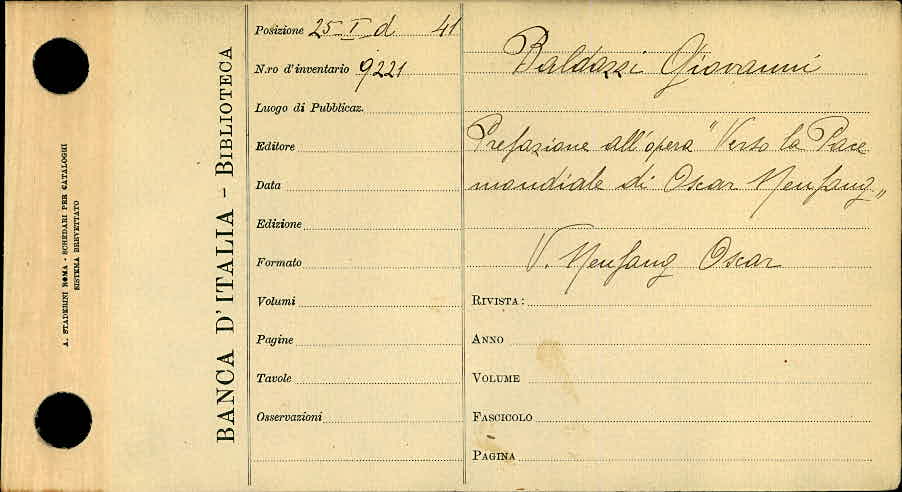 A. STADERINI ROMA - SCHEDARI PER CATALOGHI
SISTEMA BREVETTATO
BANCA D'ITALIA - BIBLIOTECA
Posizione 25 I d 41
N.ro d'inventario 9221
Luogo di Pubblicaz.
Editore
Data
Edizione
Formato
Volumi
Pagine
Tavole
Osservazioni
Baldazzi Giovanni
Prefazione all'opera "Verso la Pace
mondiale di Oscar Neufang"
V. Neufang Oscar
RIVISTA:
ANNO
VOLUME
FASCICOLO
PAGINA